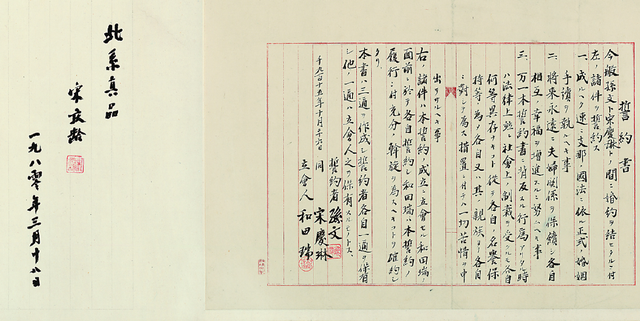 誓約書
今般孫文ト宋慶琳トノ間ニ婚約ヲ結ヒタルニ付
左ノ諸件ヲ誓約ス
一、成ルヘク速ニ支那ノ國法ニ依ル正式ノ婚姻
手續ヲ執ルヘキ事
二、将来永遠ニ夫婦関係ヲ保續シ各自
相互ノ幸福ヲ増進スルニ努ムヘキ事
三、万一本誓約書ニ背反スル行為アリタル時
ハ法律上並ニ社會上ノ制裁ヲ受クルモ各自
何等異存ナキコト従テ各自ノ名譽保
持等ノ為各自又ハ其ノ親族ヨリ各自
ニ對シ為ス措置ニ付テハ一切苦情ノ申
出ヲナサヽルヘキ事
右ノ諸件ハ本誓約ノ成立ニ立會セル和田瑞ノ
面前ニ於テ各自誓約シ和田瑞ハ本誓約ノ
履行ニ付充分ノ斡旋ヲ為スヘキコトヲ確約シ
タリ
本書ハ三通ヲ作成シ誓約者各自一通ヲ保有
シ他ノ一通ハ立會人之ヲ保有スルモノトス
千九百十五年十月二十六日
誓約者 孫文
同 宋慶琳
立會人 和田瑞
此系真品
宋慶齡
一九八〇年三月十八日